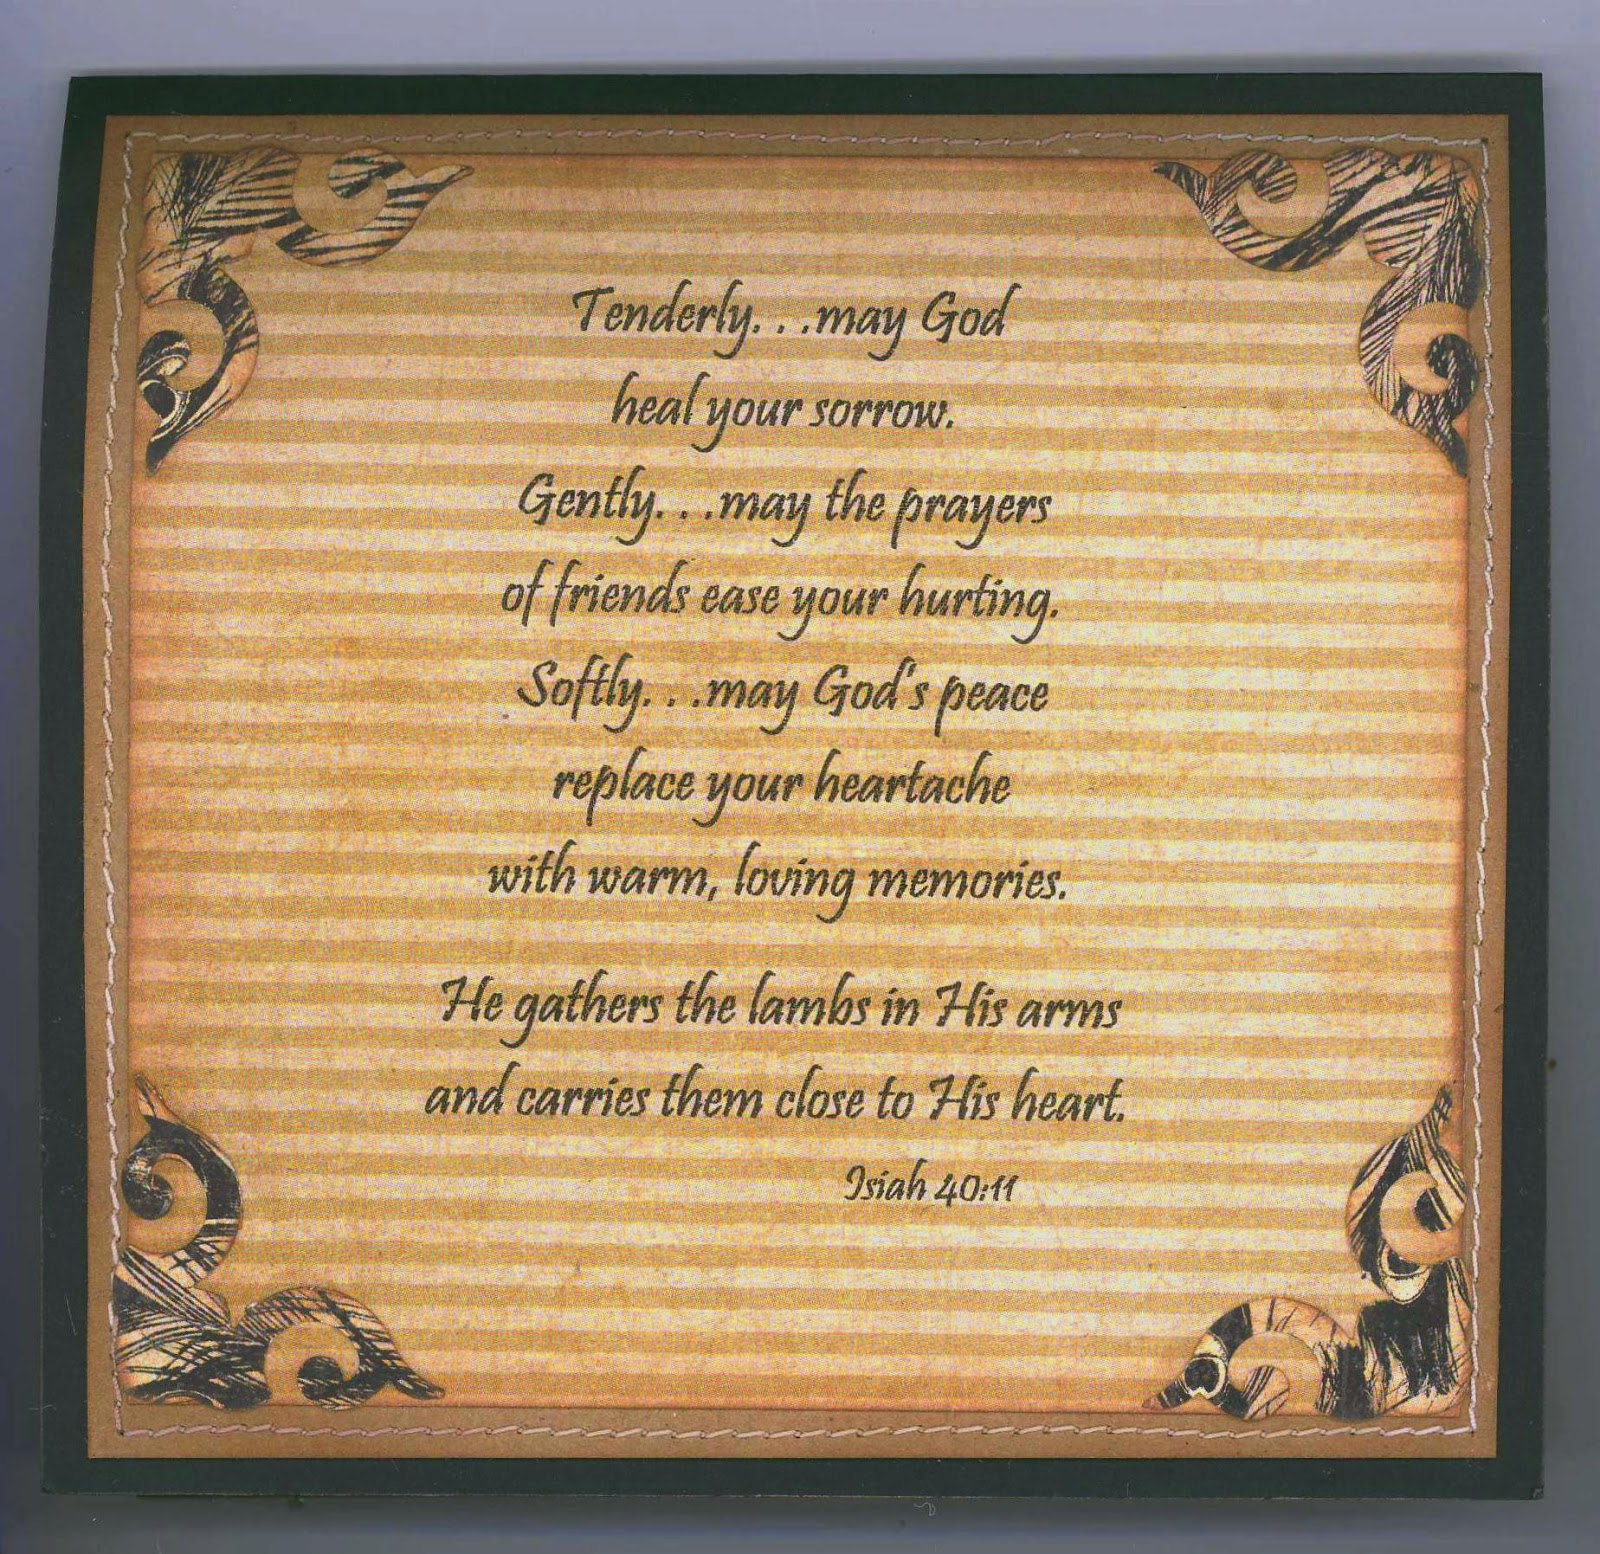 Tenderly. . .may God
heal your sorrow.
Gently. . .may the prayers
of friends ease your hurting.
Softly. . .may God's peace
replace your heartache
with warm, loving memories.
He gathers the lambs in His arms
and carries them close to His heart.
Isiah 40:11